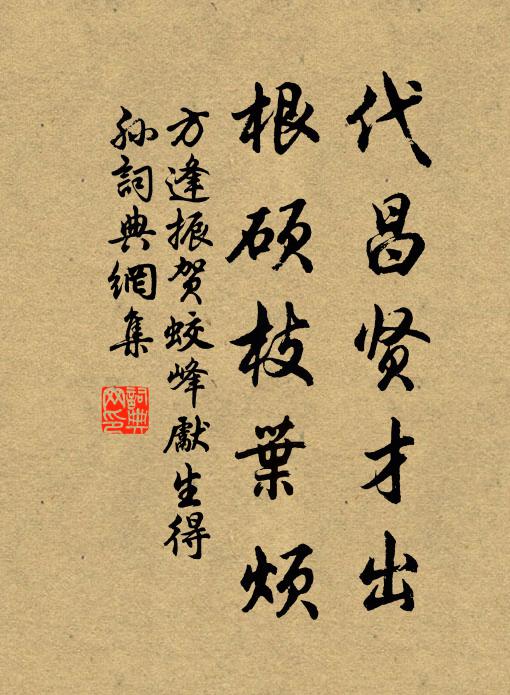 代昌贤才出
根硕枝葉烦
方逢振贺蛟峰獻生得
孙詞典網集
詞典